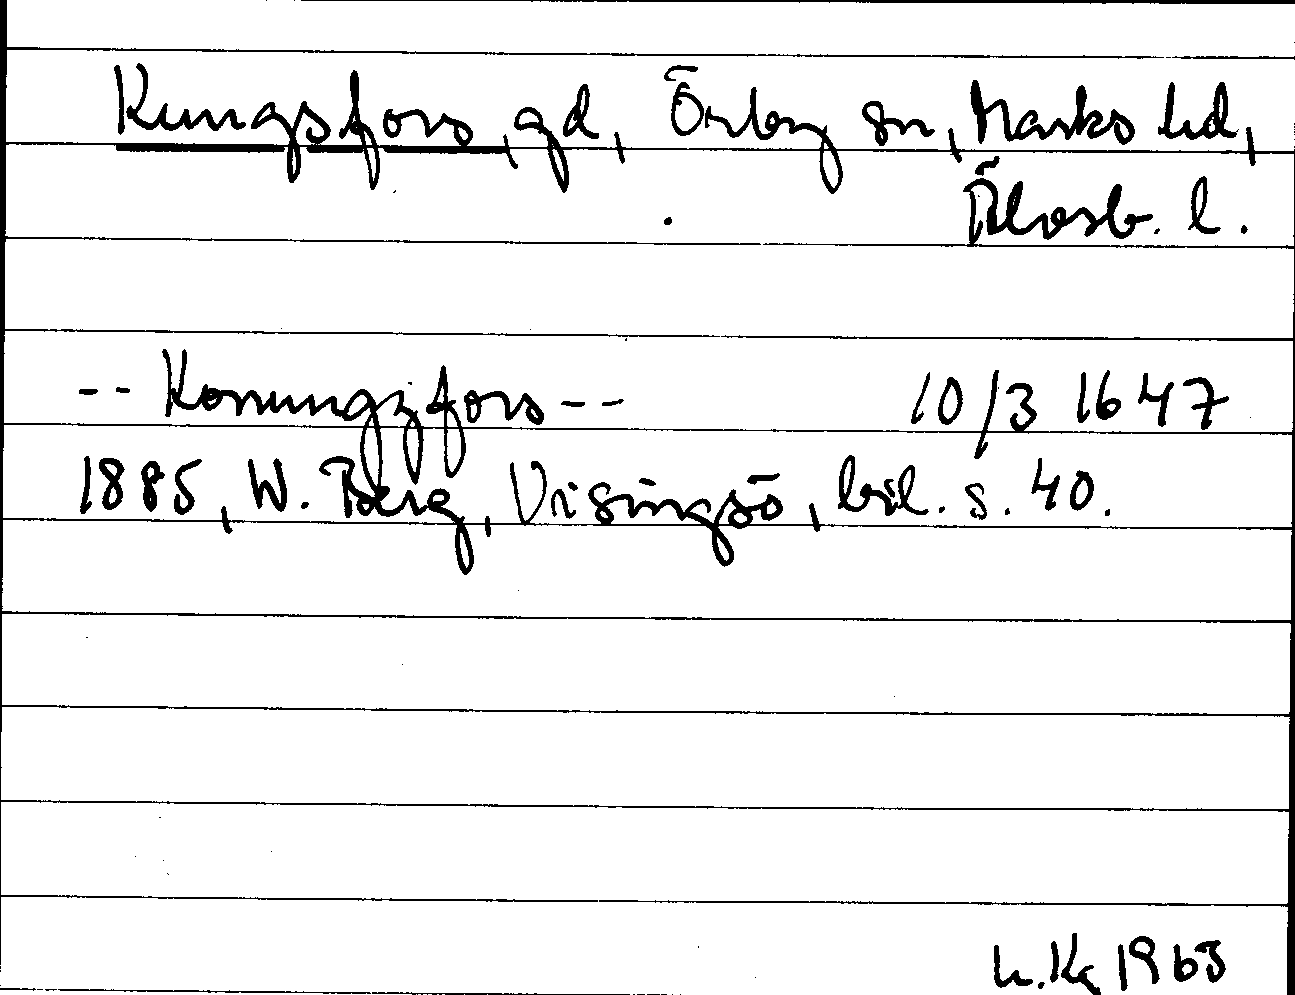 Kungsfors, gd, Örby sn, Marks hd,
Älvsb. l.
-- Konungzfors -- 10/3 1647
1885, W. Berg, Visingsö, bil. s. 40.
1963